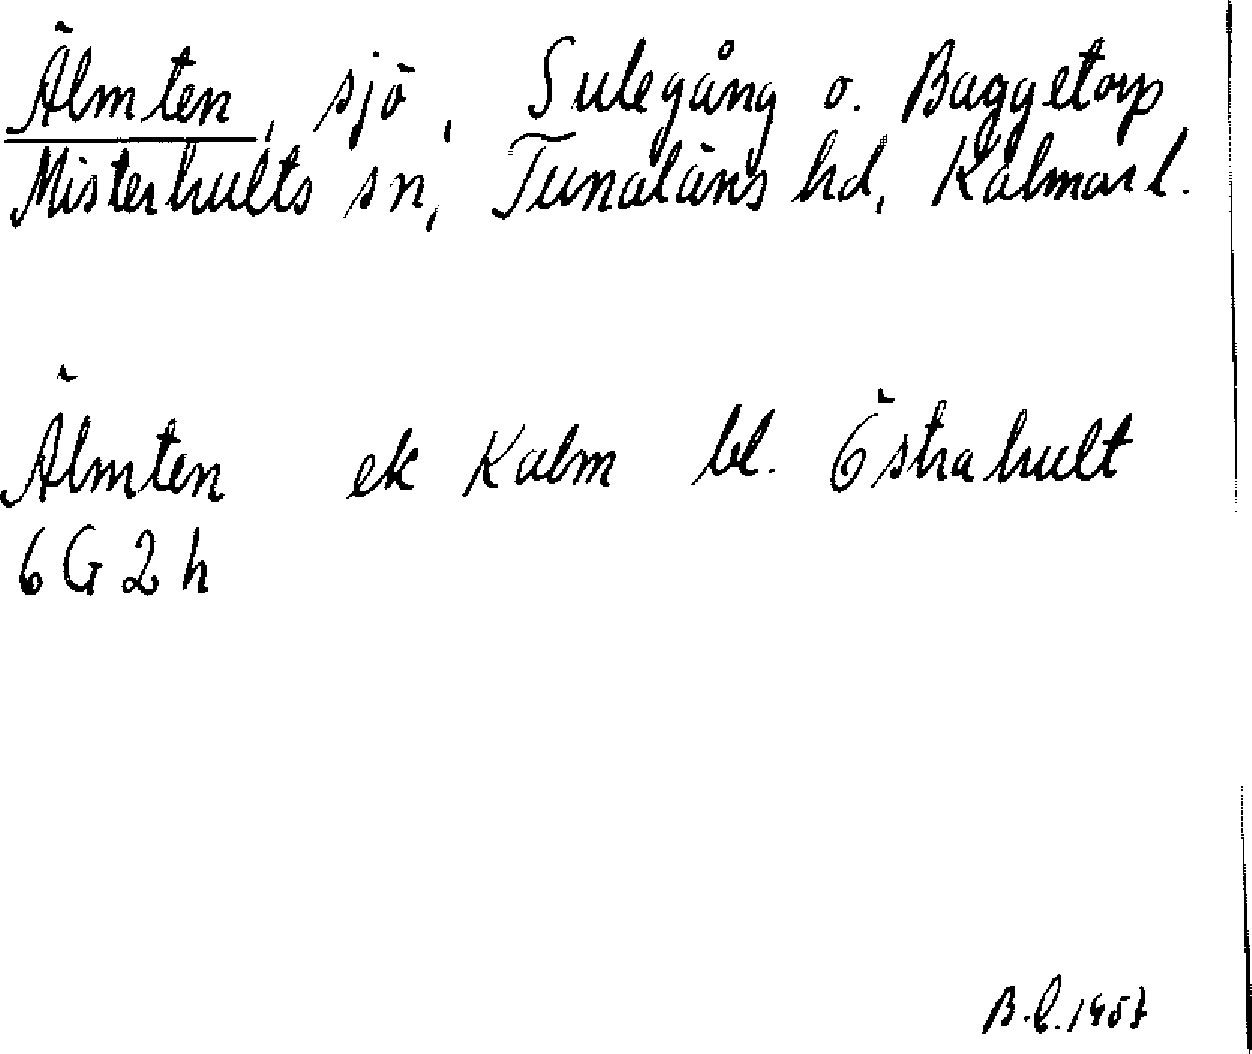 Älmten, sjö, Sulegång o. Baggetorp
Misterhults sn, Tunaläns hd, Kalmar l.
Älmten ek Kalm bl. Östrahult
6 G 2 h
B.L. 1957